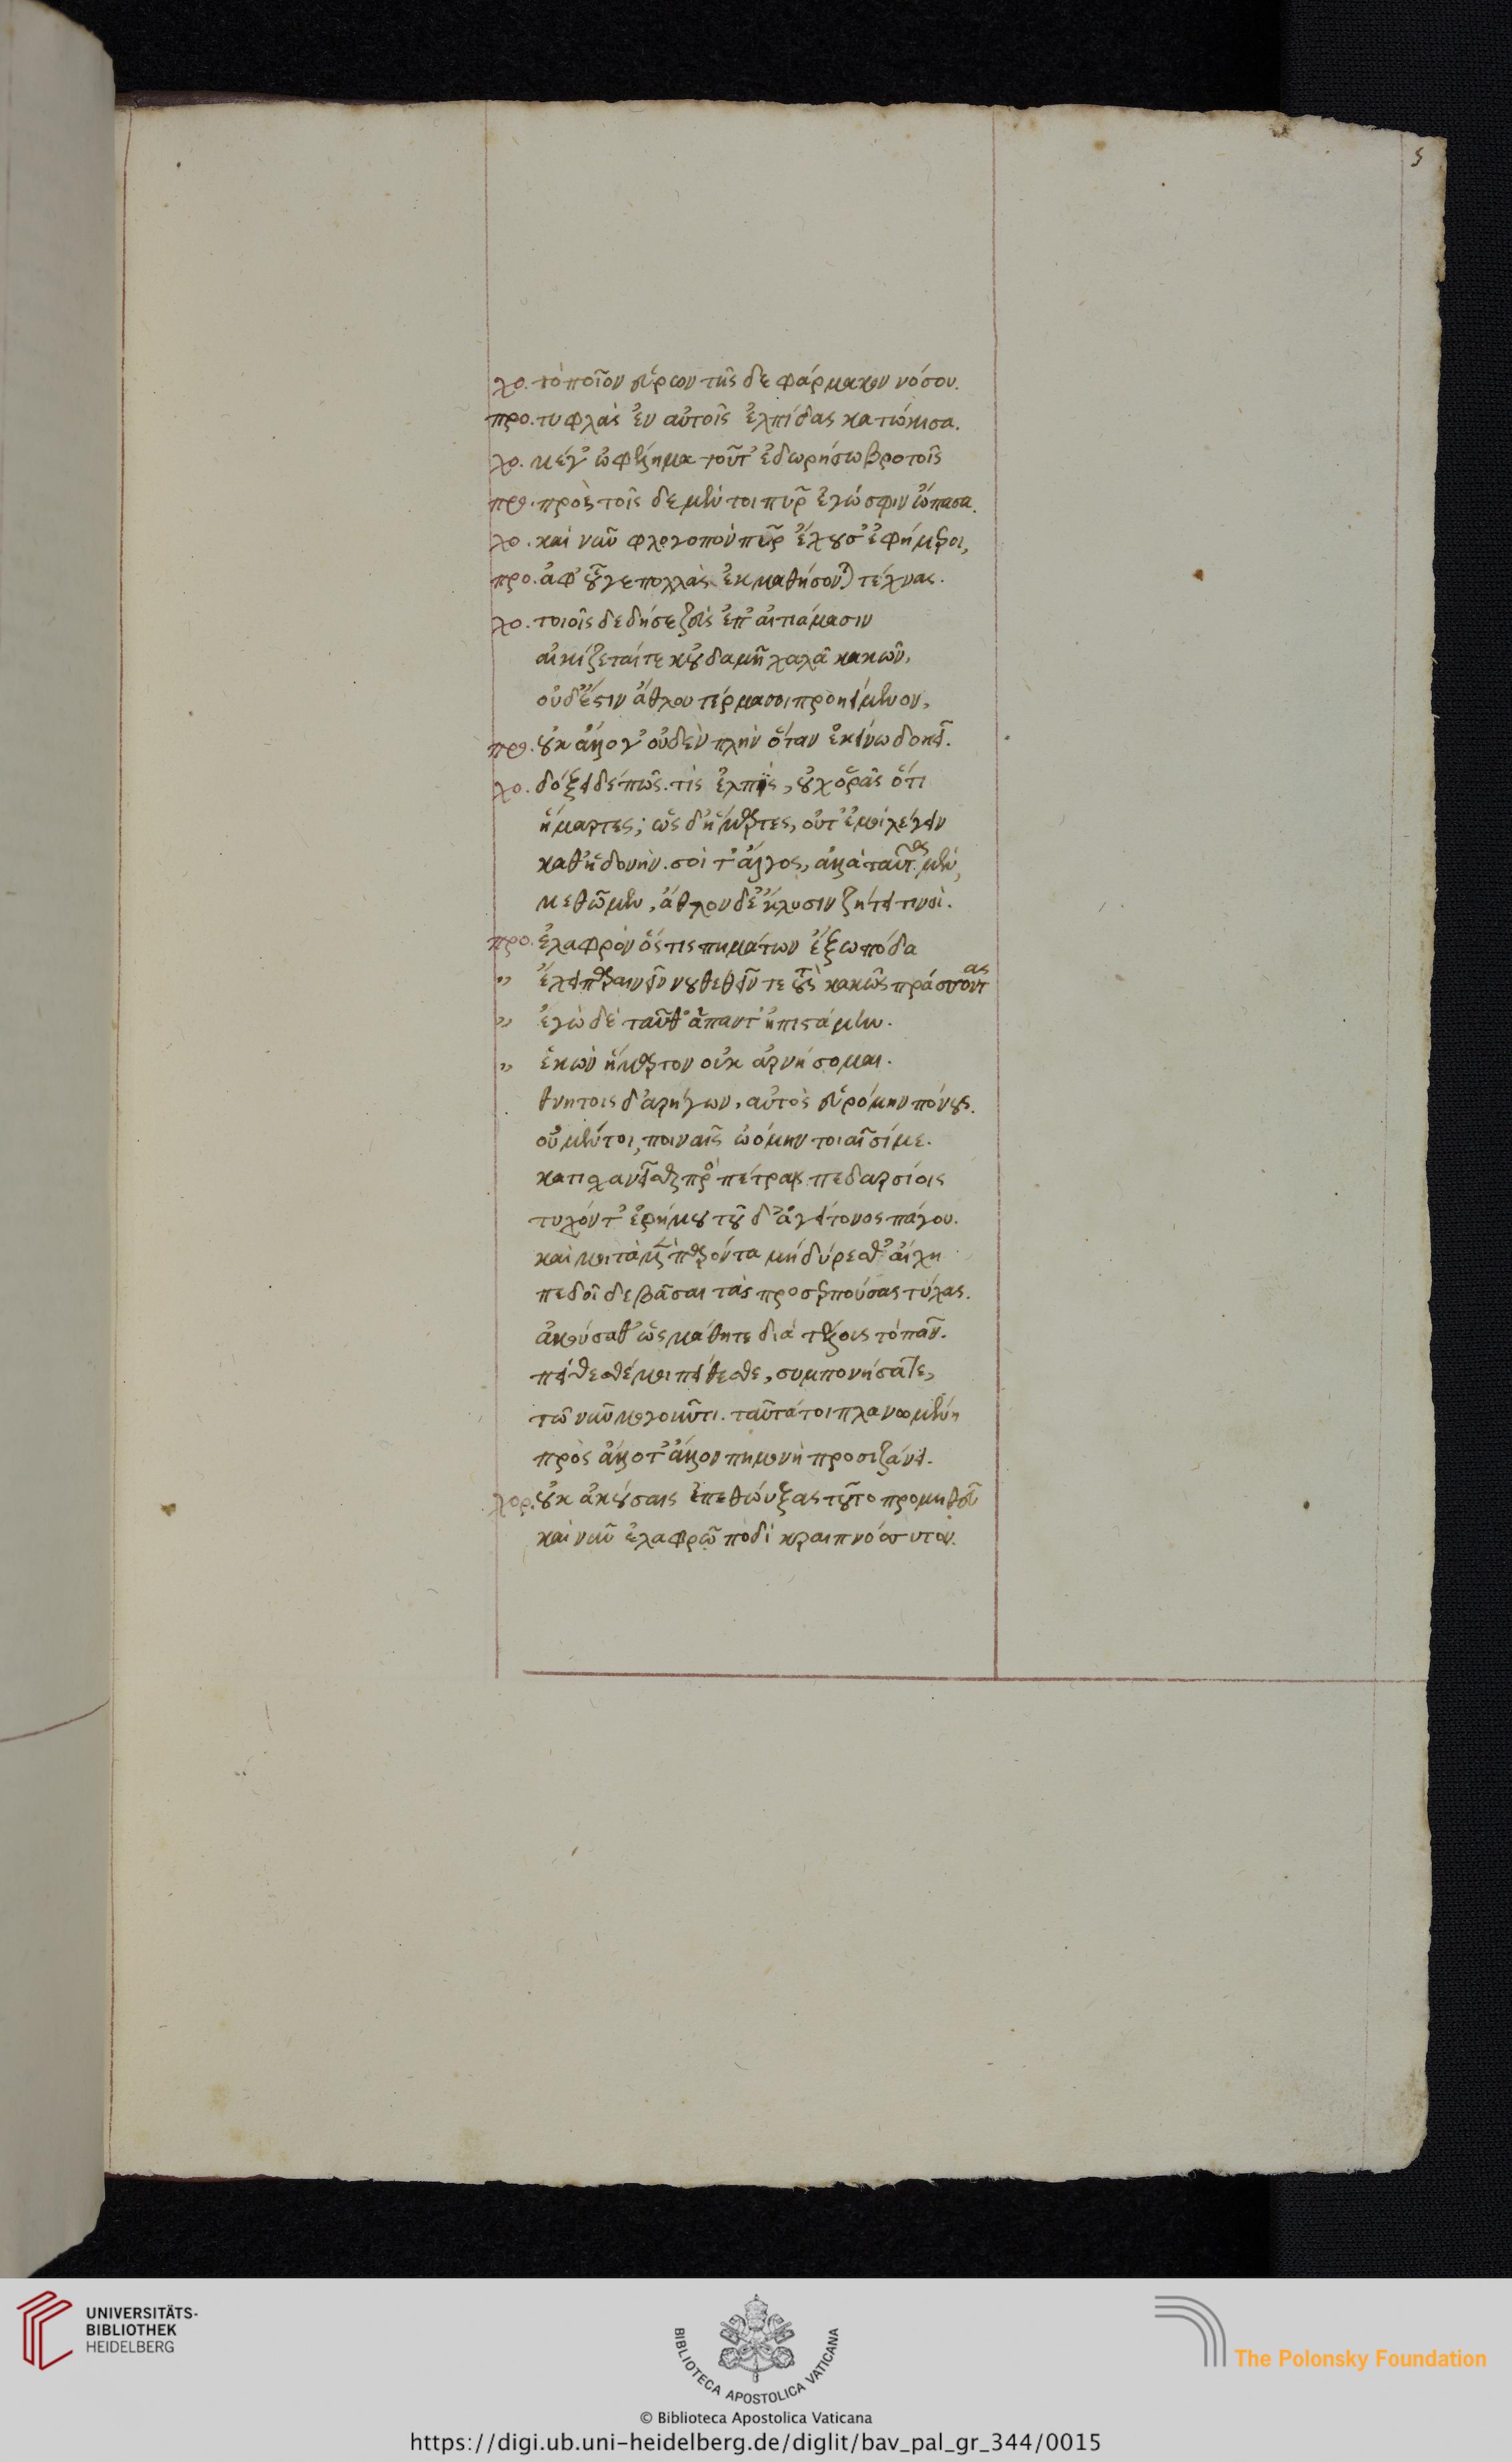 5
χο. τὸ ποῖον εὑρὼν τῆς δε φάρμακον νόσου.
προ. τυφλὰς ἐν αὐτοῖς ἐλπίδας κατώκισα.
χο. μέγ' ὠφέλημα τοῦτ' ἐδωρήσω βροτοῖς
προ. πρὸς τοῖς δε μέντοι πῦρ ἐγώ σφιν ὤπασα.
χο. καὶ νῦν φλογοπὸν πῦρ ἔχουσ' ἐφήμεροι,
προ. ἀφ' οὗ γε πολλὰς ἐκμαθήσονται τέχνας.
χο. τοιοῖς δε δή σε ζεὺς ἐπ' αἰτιάμασιν
αἰκίζεταί τε κοὐδαμῆ χαλᾶ κακῶν,
οὐδ' ἔστιν ἄθλου τέρμα σοι προκείμενον,
προ. οὐκ ἄλλο γ' οὐδὲν πλὴν ὅταν ἐκείνω δοκεῖ.
χο. δόξει δέ πῶς. τίς ἐλπὶς, οὐχ ὁρᾶς ὅτι
ἥμαρτες; ὡς δ' ἥμαρτες, οὔτ' ἐμοὶ λέγειν
καθ' ἡδονὴν. σοί τ' ἄλγος, ἀλλὰ ταῦτα μὲν,
μεθῶμεν, ἄθλου δ' ἔκλυσιν ζήτει τινσὶ.
προ. ἐλαφρὸν ὅστις πημάτων ἔξω πόδα
" ἔχει παραινεῖν νουθετεῖν τε τοὺς κακῶς πράσσοντας
" ἐγὼ δὲ ταῦθ' ἅπαντ' ἠπιστάμην.
" ἑκὼν ἥμαρτον οὐκ ἀρνήσομαι.
θνητοις δ' ἀρήγων, αὐτὸς εὑρόμην πόνους.
οὐ μέντοι, ποιναῖς ὠόμην τοιαῖσί με.
κατισχανεῖσθαι πρὸς πέτραις πεδαρσίοις
τυχόντ' ἐρήμου τοῦ δ' ἀγείτονος πάγου.
καὶ μοι τὰ μὲν παρόντα μὴ δύρεσθ' ἄχη
πεδοῖ δε βᾶσαι τὰς προσερπούσας τύχας.
ἀκούσαθ' ὡς μάθητε διὰ τέλους τὸ πᾶν.
πείθεσθέ μοι πείθεσθε, συμπονήσατε,
τῶ νῦν μογοῦντι. ταῦτά τοι πλανωμένη
πρὸς ἄλλοτ' ἄλλον πημονὴ προσιζάνει.
χορ. οὐκ ἀκούσαις ἐπεθώυξας τοῦτο προμηθεῦ
καὶ νῦν ἐλαφρῶ ποδὶ κραιπνόσσυτον.
UNIVERSITÄTS-
BIBLIOTHEK
HEIDELBERG
BIBLIOTECA APOSTOLICA VATICANA
The Polonsky Foundation
© Biblioteca Apostolica Vaticana
https://digi.ub.uni-heidelberg.de/diglit/bav_pal_gr_344/0015